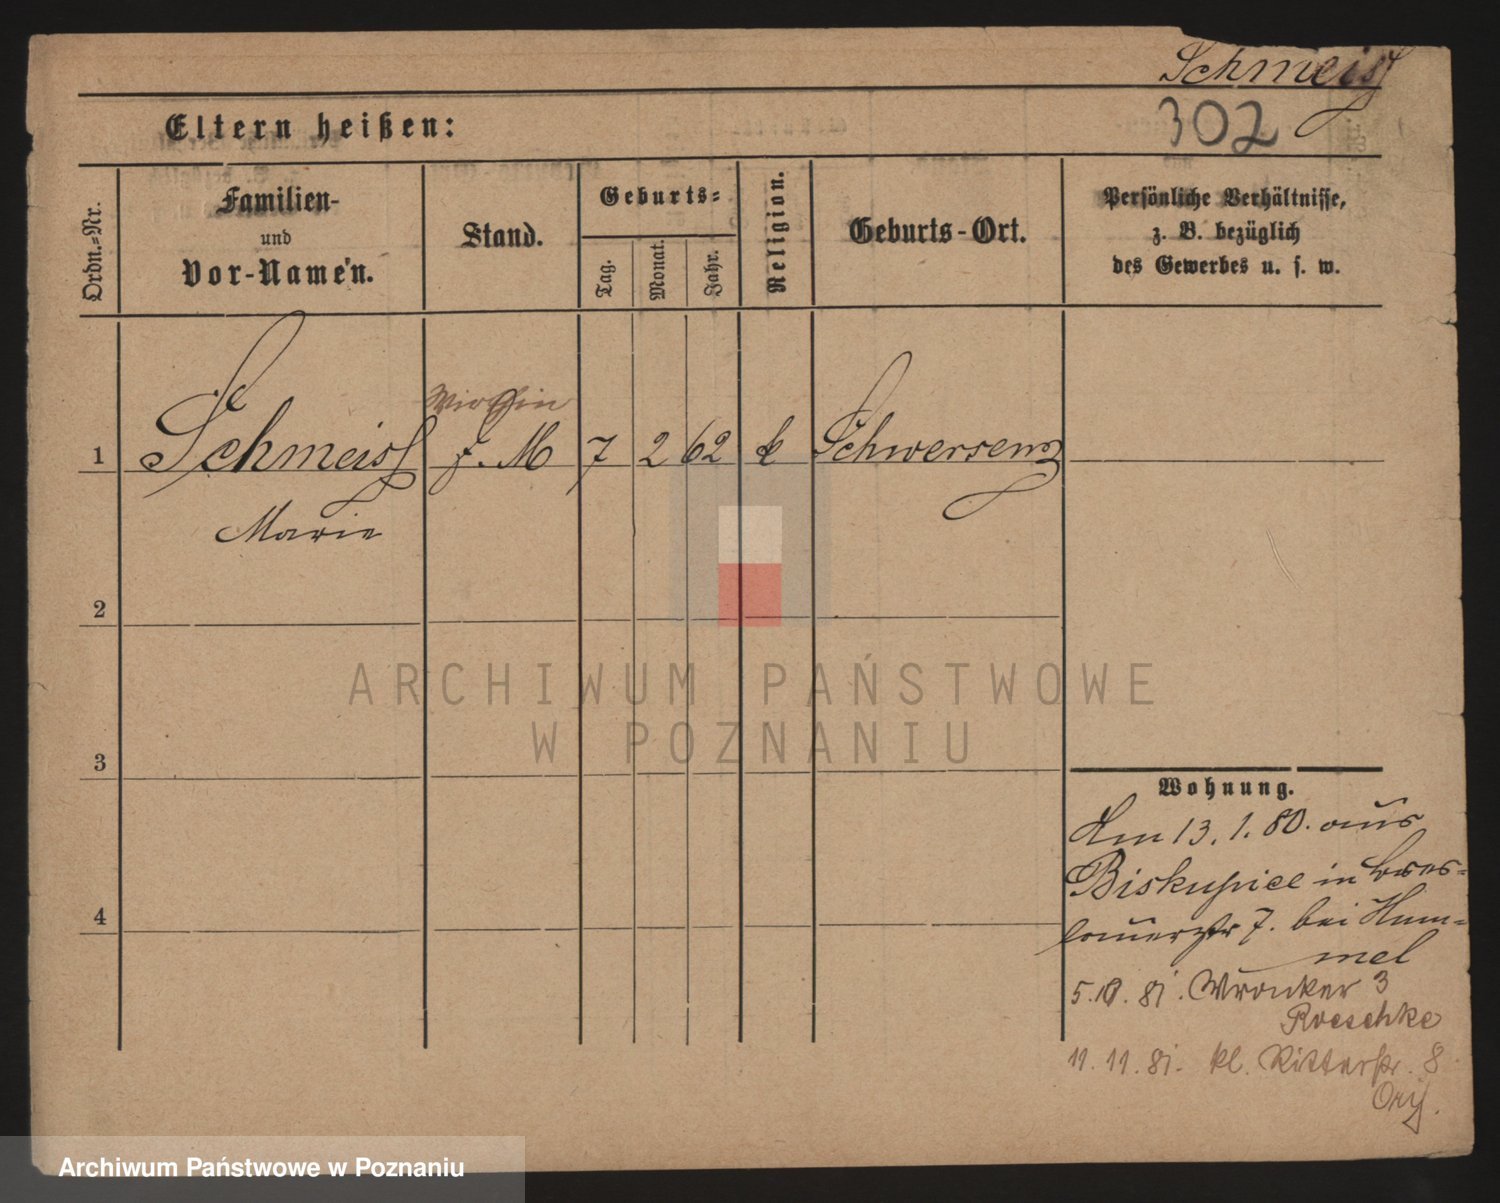 Schmeisz
302
Eltern heißen:
Ordn.=Nr.
Familien-
und
Vor-Namen.
Stand.
Geburts=
Tag.
Monat.
Jahr.
Religion.
Geburts-Ort.
Persönliche Verhältnisse,
z. B. bezüglich
des Gewerbes u. s. w.
1 Schmeisz 7 2 62 k Schwersenz
Marie
2
3
4
Wohnung.
Am 13. 1. 80. aus
Biskupice in Bres=
lauerstr 7. bei Hum=
mel
5.10.81. Wronker 3
Roeschke
11.11.81. kl. Ritterstr. 8
ARCHIWUM PAŃSTWOWE
W POZNANIU
Archiwum Państwowe w Poznaniu